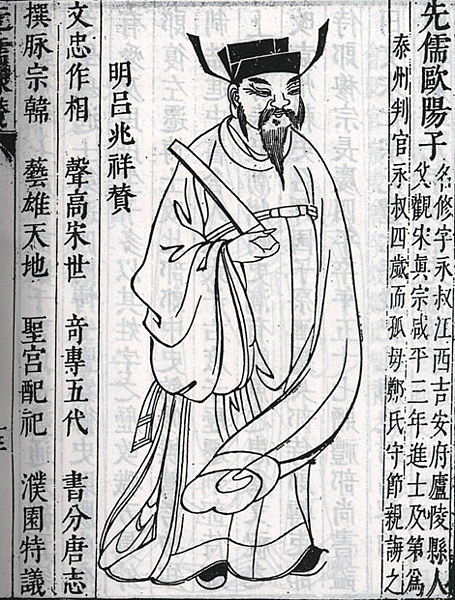 先儒歐陽子
名修字永叔江西吉安府廬陵縣人
父觀宋眞宗咸平三年進士及第為
泰州判官永叔四歲而孤母鄭氏守節親誨之
明呂兆祥賛
文忠作相 聲高宋世 竒專五代 書分唐志
撰脉宗韓 藝雄天地 聖宮配祀 濮園特議